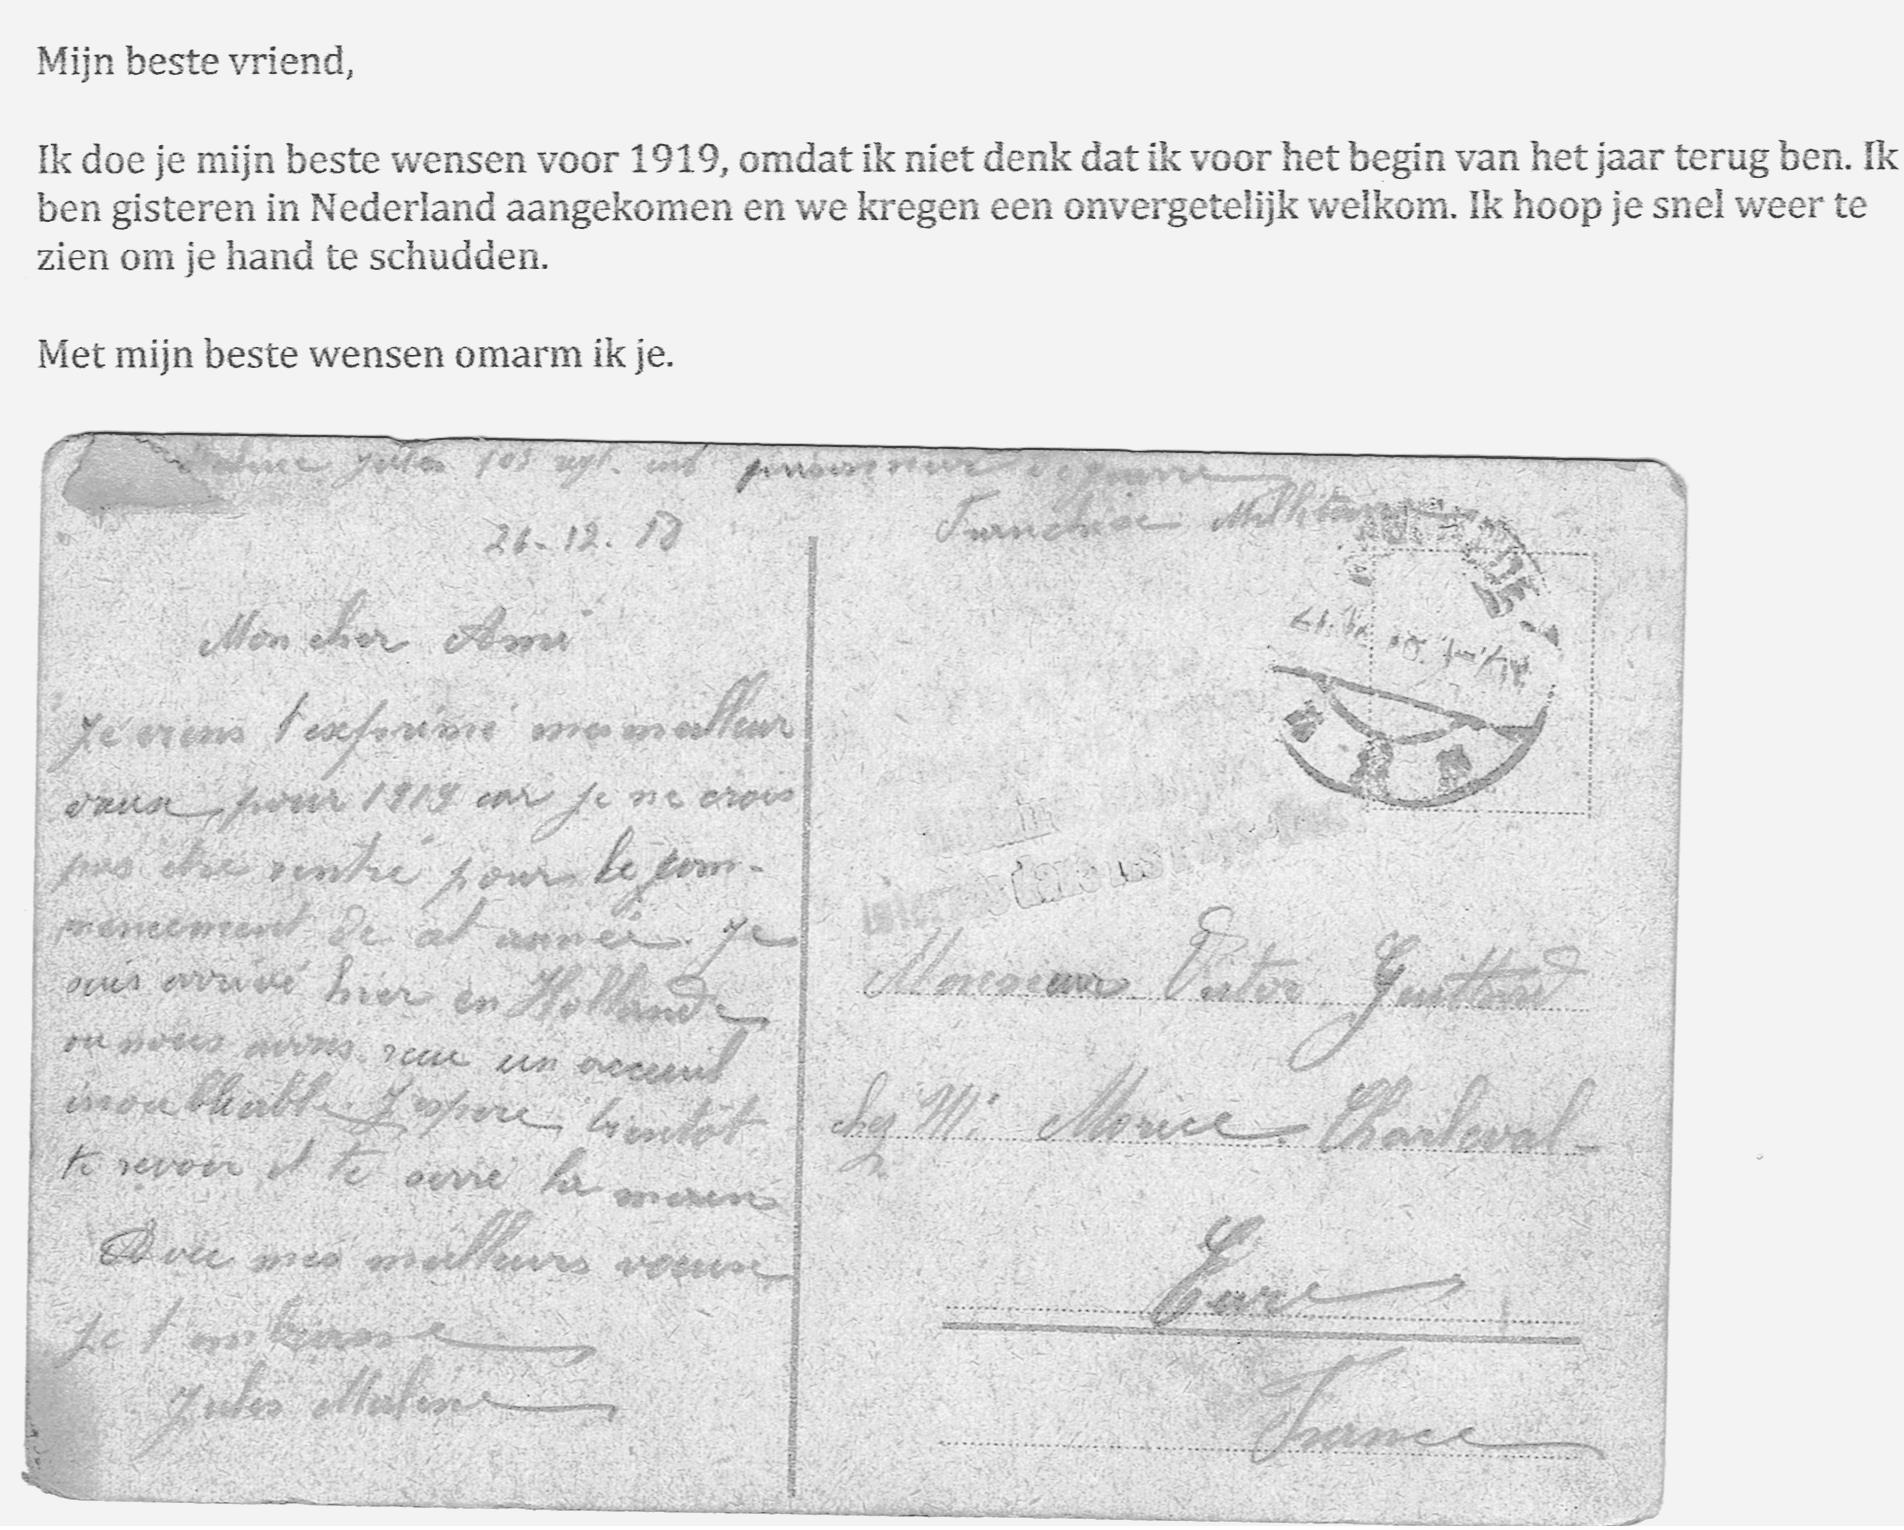 Mijn beste vriend,
Ik doe je mijn beste wensen voor 1919, omdat ik niet denk dat ik voor het begin van het jaar terug ben. Ik
ben gisteren in Nederland aangekomen en we kregen een onvergetelijk welkom. Ik hoop je snel weer te
zien om je hand te schudden.
Met mijn beste wensen omarm ik je.
Jules 103 regt. inf prisonnier de guerre
26-12. 18
Franchise Militaire
Mon cher Ami
Je viens t'exprimé mes meilleur
vœux pour 1919 car je ne crois
pas être rentré pour le com-
mencement de cet année. Je
suis arrivé hier en Hollande
ou nous avons recu un acceuil
inoubliable J'espère bientôt
te revoir et te serré la main
Avec mes meilleurs voeux
Je t'embrasse
Jules
internés dans les
Monsieur Victor
chez Mr Morice Charleval
Eure
France